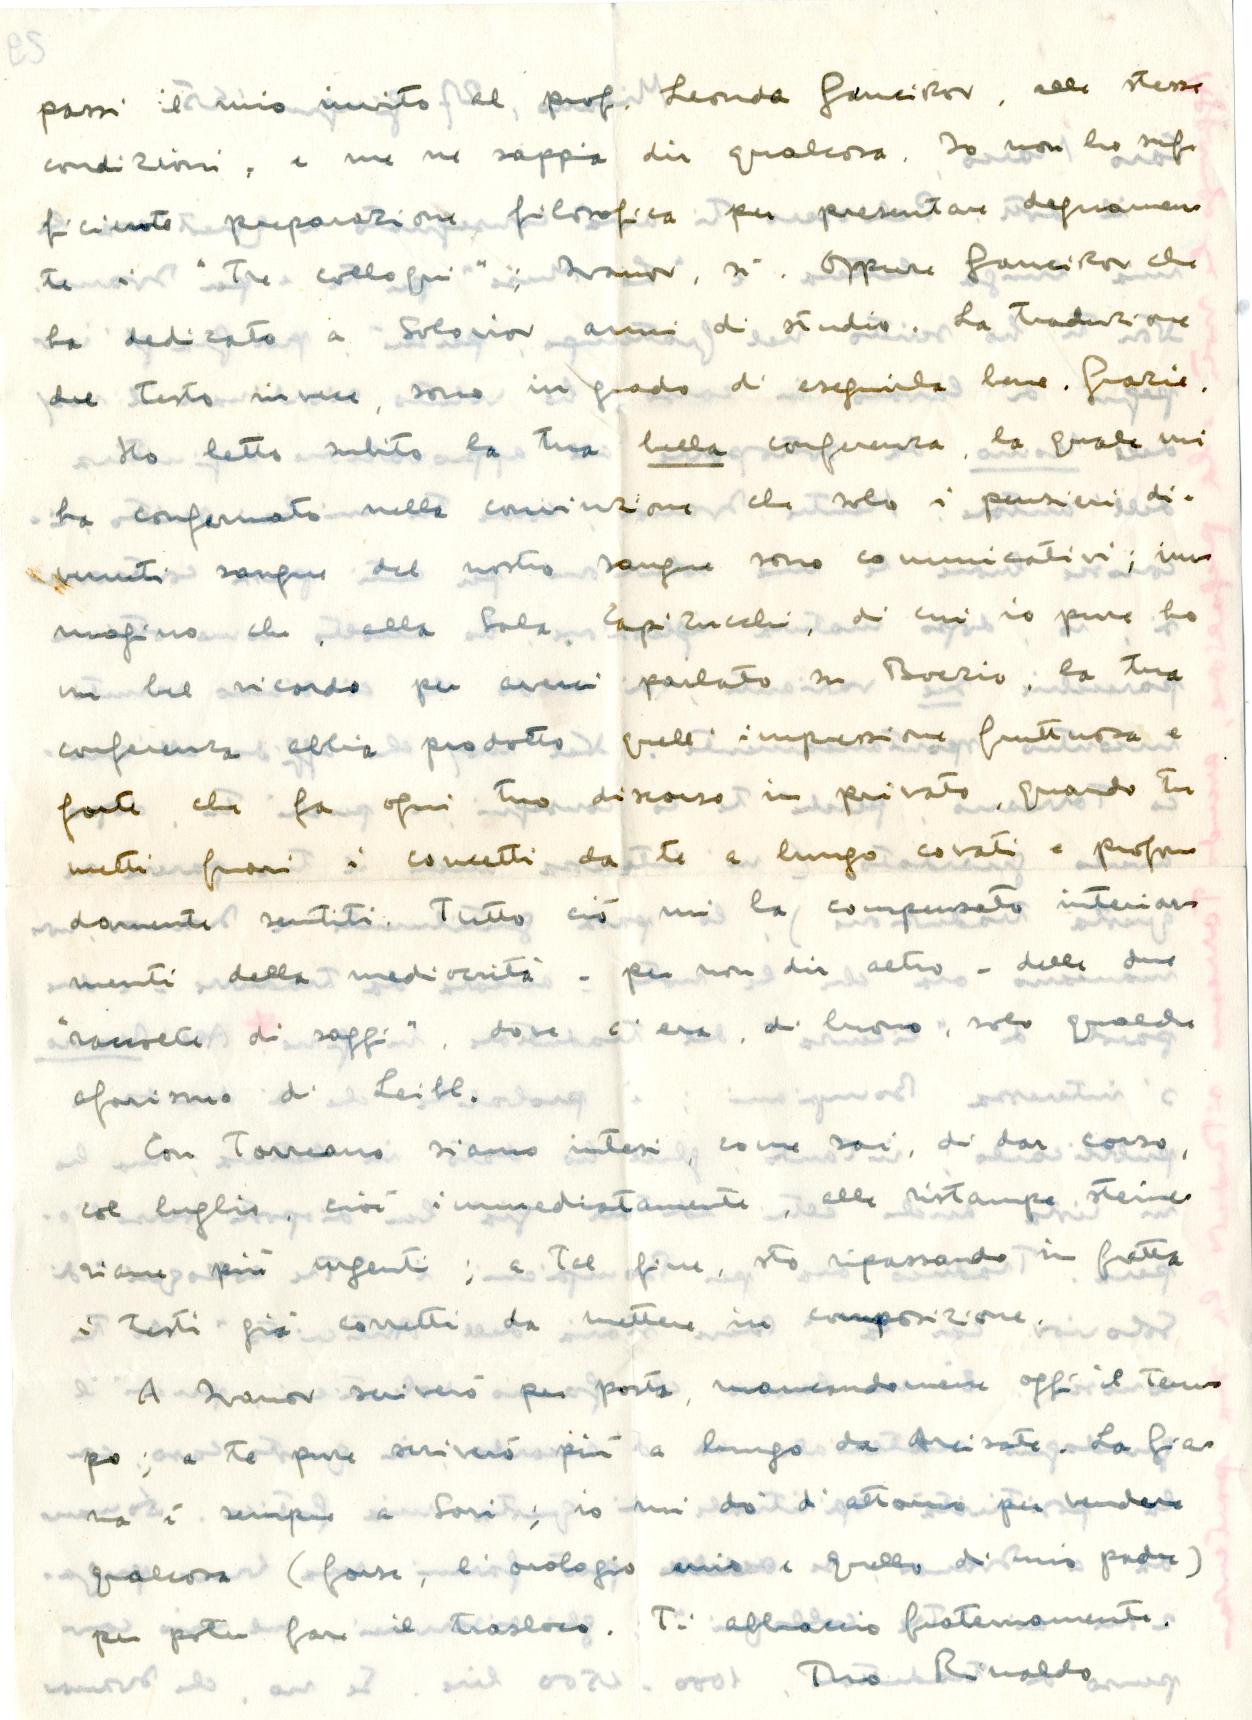 passi il mio invito al prof. Leonida Gancikov, alle stesse
condizioni, e me ne sappia dir qualcosa. Io non ho suf-
ficiente preparazione filosofica per presentare degnamen
te i "Tre colloqui"; Ivanov, sì. Oppure Gancikov che
ha dedicato a Soloviov anni di studio. La traduzione
del testo invece, sono in grado di eseguirla bene. Grazie.
Ho letto subito la tua bella conferenza, la quale mi
ha confermato nella convinzione che solo i pensieri di-
venuti sangue del nostro sangue sono comunicativi; im
magino che, alla Sala Capizucchi, di cui io pure ho
un bel ricordo per averci parlato su Boezio, la tua
conferenza abbia prodotto quell'impressione fruttuosa e
forte che fa ogni tuo discorso in privato, quando tu
metti fuori i concetti da te a lungo covati e profon
damente sentiti. Tutto ciò mi ha compensato interior
mente della mediocrità - per non dir altro - delle due
"raccolte di saggi", dove c'era, di buono, solo qualche
aforismo di Leibl.
Con Torreano siamo intesi, come sai, di dar corso,
col luglio, cioè immediatamente, alle ristampe steine
riane più urgenti; a tal fine, sto ripassando in fretta
i testi già corretti da mettere in composizione.
A Ivanov scriverò per posta, mancandomene oggi il tem
po; a te pure scriverò più a lungo da Arcisate. La Gia
na è sempre a Sori; io mi dò d'attorno per vendere
qualcosa (forse, l'orologio mio e quello di mio padre)
per poter fare il trasloco. Ti abbraccio fraternamente.
Tuo Rinaldo